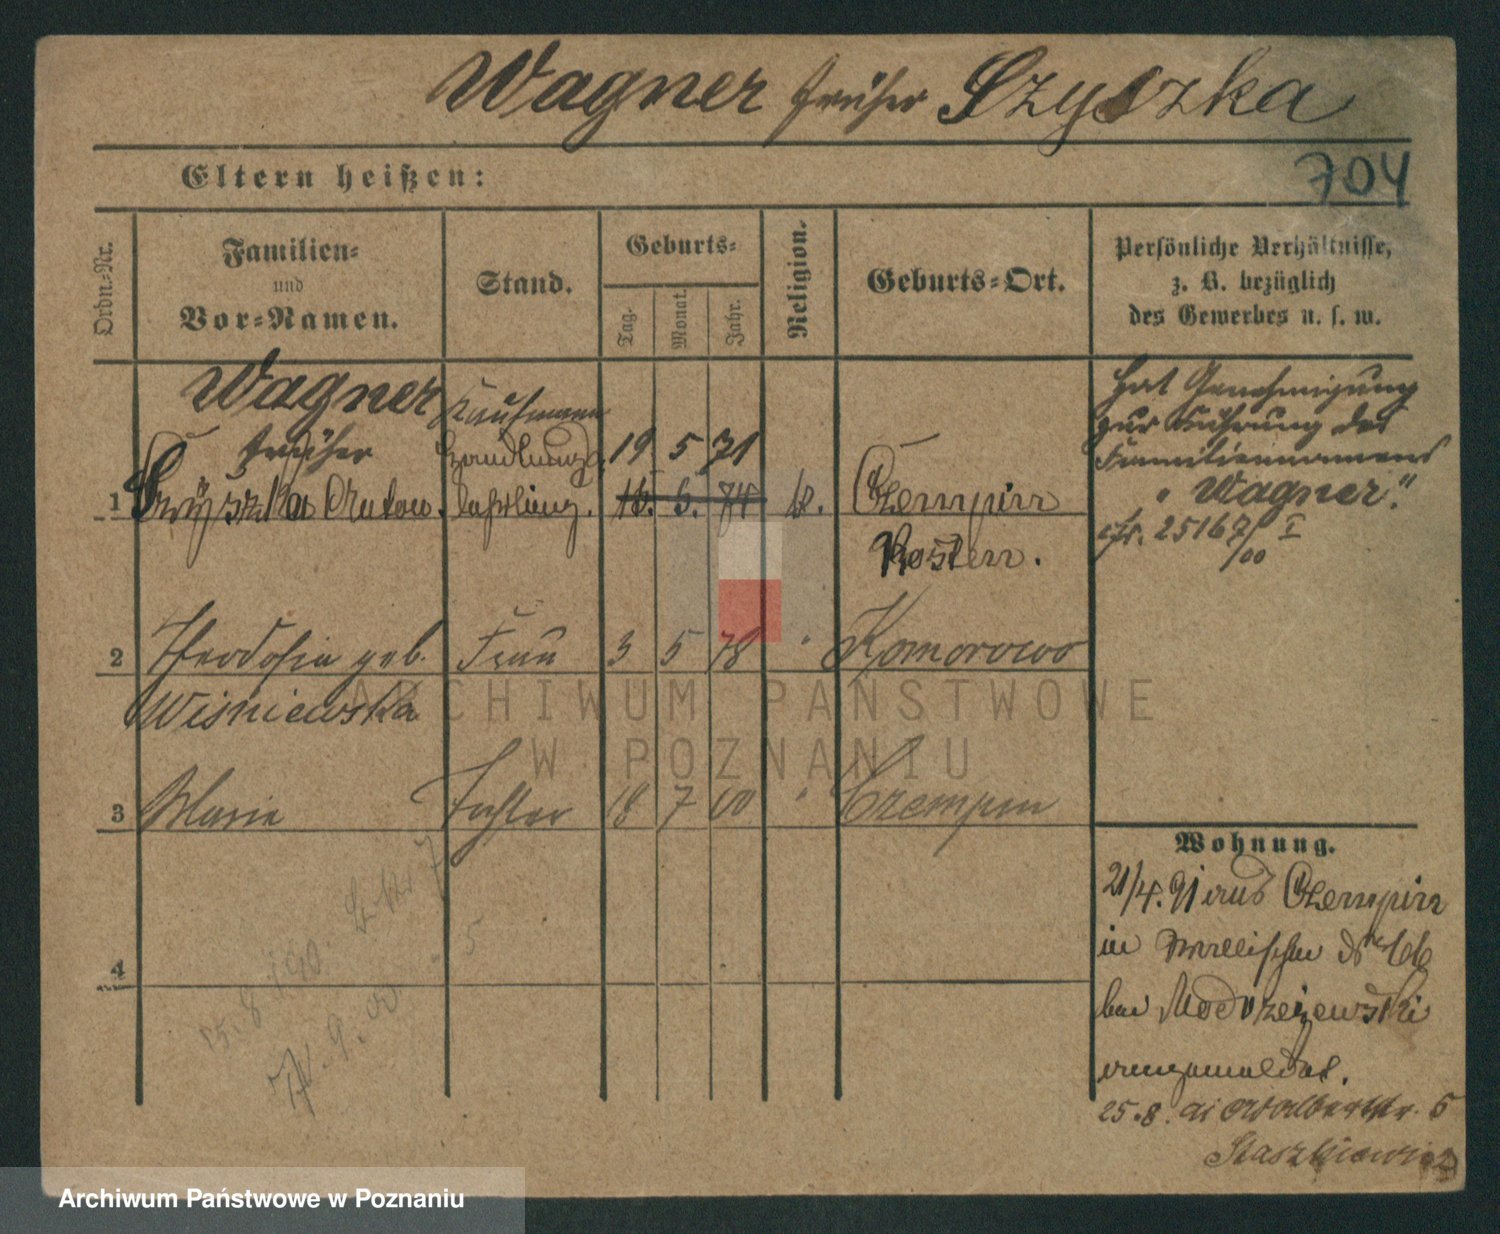 Wagner früher Szyszka
704
Eltern heißen:
Ordn.-Nr.
Familien-
und
Vor-Namen.
Stand.
Geburts-
Tag.
Monat.
Jahr.
Religion.
Geburts-Ort.
Persönliche Verhältnisse,
z. B. bezüglich
des Gewerbes u. s. w.
Wagner Kaufmann
früher Handlungs 19 5 71
1 Szyszka Anton. lehrling. 16. 6. 74 k. Czempin
Kosten.
Hat Genehmigung
zur Führung des
Familiennamens
"Wagner."
25167/00 I
2 Theodosia geb. Frau 3 5 78 " Komorowo
Wisniewska
3 Marie Tochter 18 7 00 " Czempin
4
Wohnung.
21/4. 91 aus Czempin
in Wallischei No 66
bei Modrzejewski
angemeldet.
25.8. Adalbertstr. 5
Staszkiewicz
15. 8
9. 00
ARCHIWUM PAŃSTWOWE
W POZNANIU
Archiwum Państwowe w Poznaniu